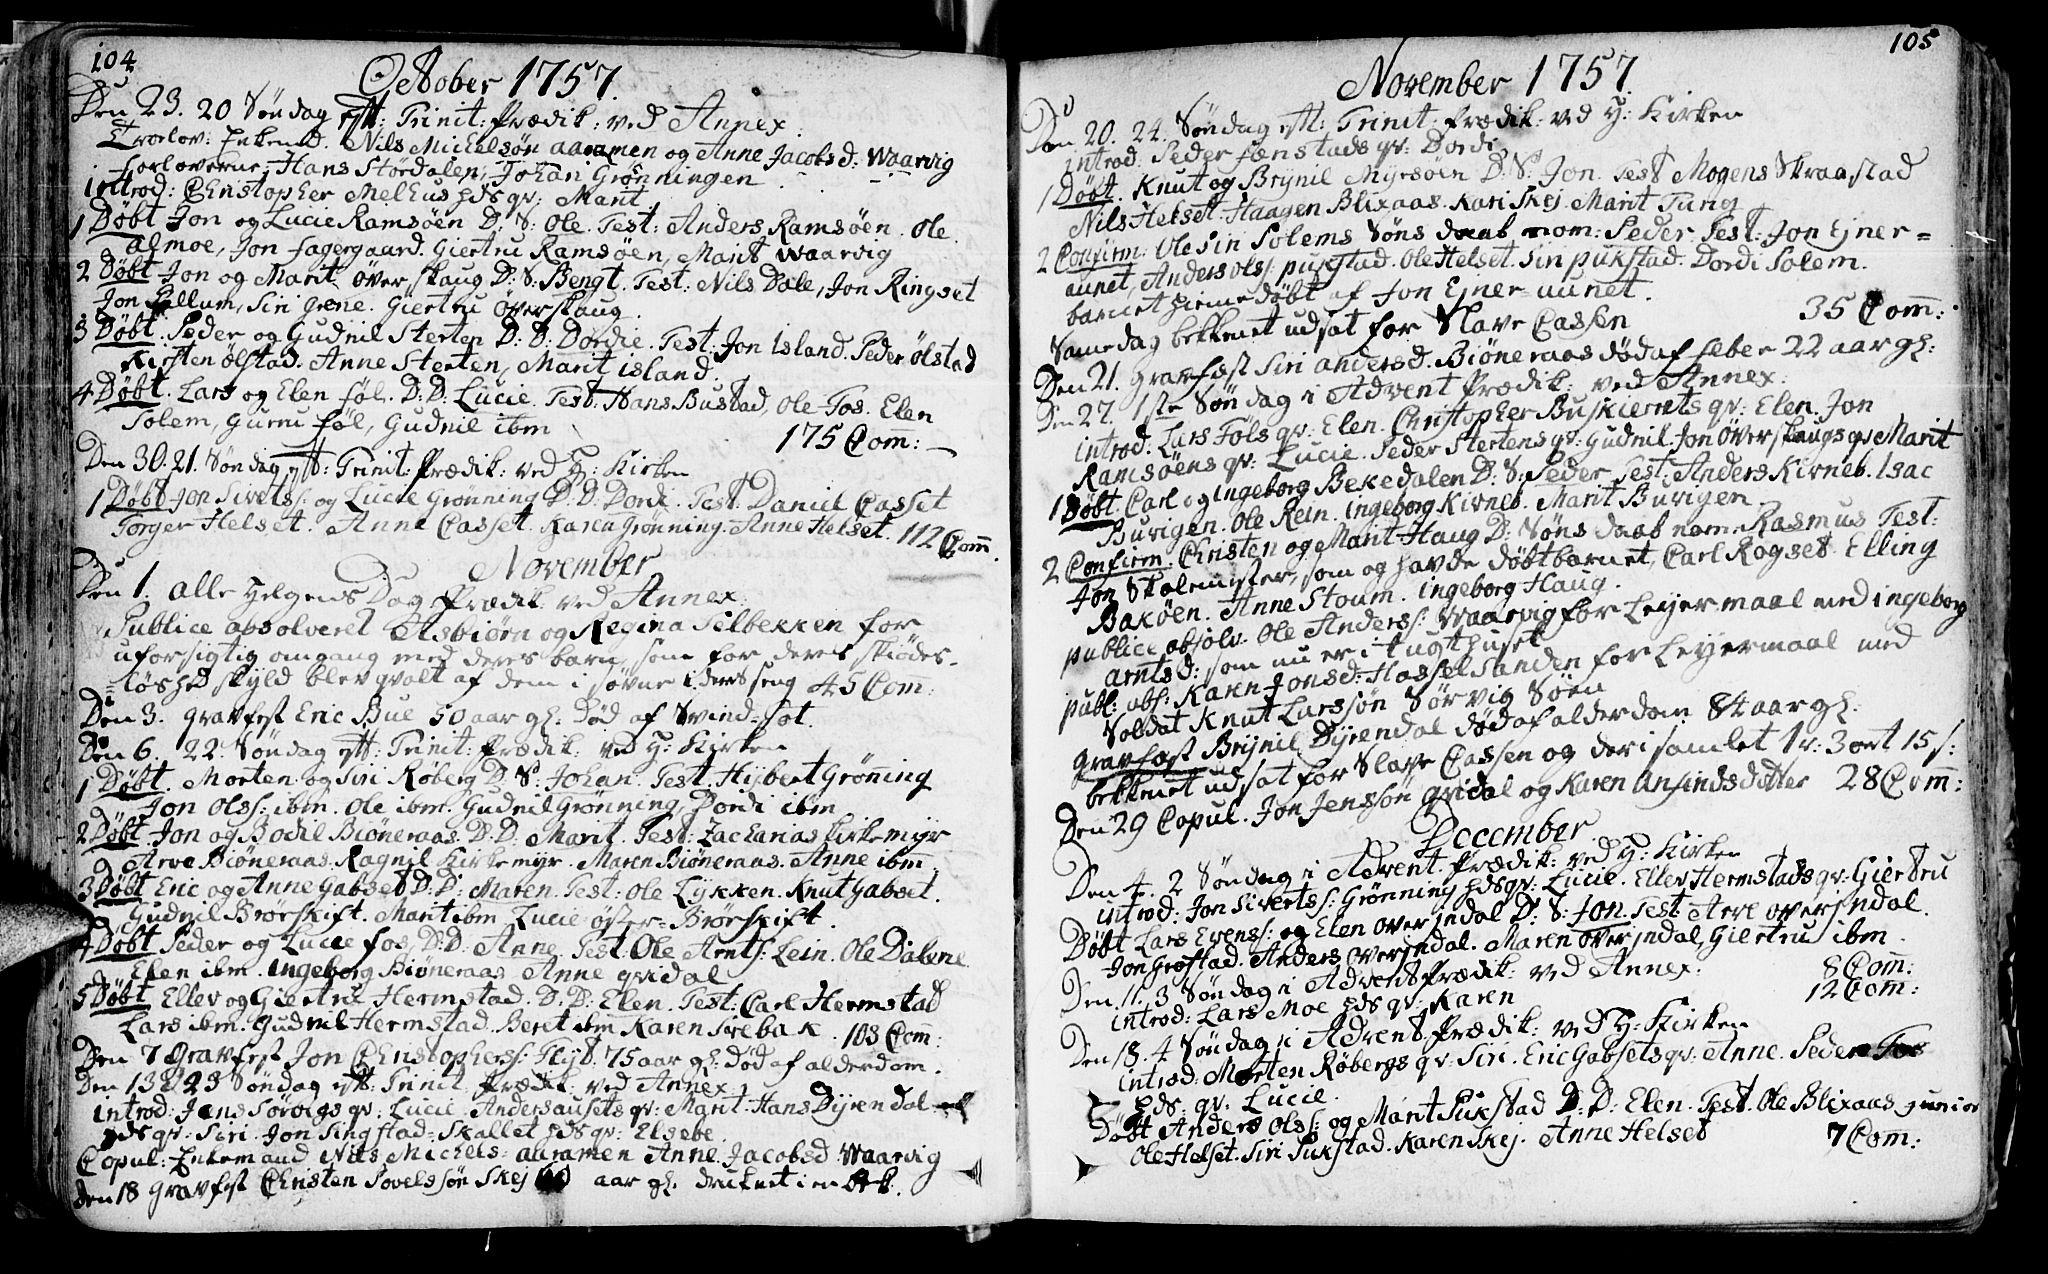 104
October 1757.
Den 23. 20 Søndag eft: Trinit: Prædik: ved Annex.
Troelov: Enkemd. Nils Michelsøn aaramen og Anne Jacobsd. Waarvig
forloverne, Hans Størdalen, Johan Grønningen
introd: Christopher Melhus hds qv: Marit.
1 Døbt Jon og Lucie Ramsøen D. S: Ole. Test: Anders Ramsøen. Ole
almoe, Jon fagergaard. Giertru Ramsøen, Marit Waarvig
2 Døbt Jon og Marit överskaug D: S. Bengt. Test: Nils Dale, Jon Ringset
Jon Sellum, Siri Grene. Giertru Overskaug.
3 Døbt. Peder og Gudnil Sterten D: D: Dordie. Test: Jon Island. Peder Ølstad
Kirsten ølstad. Anne Sterten, Marit island.
4 Døbt. Lars og Elen føl. D: D: Lucie. Test: Hans Bustad, Ole Fos. Elen
Solem, Guru føl, Gudnil ibm
175 Com:
Den 30. 21. Søndag eft: Trinit: Prædik: ved H: Kirken
1 Døbt Jon Sivets: og Lucie Grønning D. D. Dordi. Test: Daniel Casset
Torger Helset. Anne Casset. Karen Grønning. Anne Helset. 112 Com.
November
Den 1. alle Helgens Dag Prædik ved Annex.
Publice absolveret Asbiørn og Regina Selbekken for
uforsigtig omgang med deres barn, som for deres skiødes-
løshed skyld blev qvalt af dem i søvne i deres seng 45 Com:
Den 3. gravfest Eric Bue 50 aar gl: død af Svind-sot.
Den 6. 22. Søndag eft: Trinit: Prædik: ved H: Kirken
1 Døbt. Morten og Siri Røberg D. S: Johan. Test: Hybert Grønning
Jon Olss: ibm. Ole ibm. Gudnil Grønning, Dordi ibm.
2 Døbt. Jon og Bodil Biøneraas. D: D: Marit. Test: Zacharias Kirkemyr
Arve Biøneraas. Ragnil Kirkemyr. Maren Biøneraas. Anne ibm
3 Døbt Eric og Anne Gabset D: D: Maren. Test: Ole Lykken. Knut Gabset.
Gudnil Brørskift. Marit ibm Lucie öster-Brørskift.
4 Døbt Peder og Lucie fos, D: D: Anne. Test: Ole Arnts: Lein. Ole Dalene
Elen ibm. Ingeborg Biøneraas Anne qvidal
5 Døbt Ellev og Giertru Hermstad. D: D: Elen. Test: Carl Hermstad
Lars ibm. Gudnil Hermstad. Beret ibm Karen Svebak. 103 Com:
Den 7 Gravfest Jon Christophers: Flyt. 75 aar gl: død af alderdom.
Den 13 23 Søndag eft: Trinit Prædik: ved Annex.
introd: Jens Sørvigs qv: Lucie. Anders ausets qv: Marit. Hans Dyrendal
hds qv: Siri. Jon Singstad-Skallet hds qv: Elsebe.
Copul: Enkemand Nils Michels: aaramen Anne Jacobsd Waarvig
Den 18 gravfest Christen Povelssøn Skej aar gl: druknet i en
105
November 1757.
Den 20. 24. Søndag eft: Trinit: Prædik: ved H: Kirken
introd: Peder fænstads qv: Dordi.
1 Døbt. Knut og Brynil Myrsøen D: S: Jon. Test Mogens Skraastad
Nils Helset. Haagen Blixaas. Kari Skej. Marit Turig
2 Confirm: Ole Siri Solems Søns daab nom: Peder Test: Jon Ejner-
aunet, Anders Olss: pukstad. Ole Helset. Siri pukstad. Dordi Solem.
barnet hiemedøbt af Jon Ejner-aunet.
Samme dag bekkenet udsat for Slave Cassen
35 Com:
Den 21. gravfest Siri andersd. Biøneraas død af feber 22 aar gl:
Den 27. 1ste Søndag i Advent Prædik: ved Annex.
introd: Lars Føls qv: Elen. Christopher Buskierets qv: Elen. Jon
Ramsøens qv: Lucie. Peder Stertens qv: Gudnil. Jon överskaugs qv Marit
1 Døbt Carl og Ingeborg Bekedalen D: S: Peder Test: Anders Kirneb. Isac
Burigen. Ole Rein. ingeborg Kirneb. Marit Burigen
2 Confirm. Christen og Marit Haug D: Søns daab nom: Rasmus Test:
Jon Skolemister, som og hafde døbt barnet, Carl Rogset. Elling
Bakøen. Anne Stoum. ingeborg Haug.
publice absolv. Ole Anders: Waarvig for Leyermaal med ingeborg
arntsd: som nu er i tugthuset
publ: abs: Karen Jonsd: Hasselsanden for Leyermaal med
Soldat Knut Larssøn Sørvig Søen
gravfest Brynil Dyrendal død af alderdom 84 aar gl:
bekkenet udsat for Slave Cassen og deri samlet 1 r: 3 ort 15 s:
Den 29 Copul. Jon Jenssøn qvidal og Karen Ansindsdotter 28 Com:
December
Den 4. 2 Søndag i Advent. Prædik: ved H: Kirken
introd: Jon Siverts: Grønning hds qv: Lucie. Ellev Hermstads qv: Giertru
Døbt Lars Evens: og Elen overjndal D: S: Jon. Test Arve overjndal.
Jon Grøstad. Anders overjndal. Maren overjndal, Giertru ibm.
8 Com:
Den 11. 3 Søndag i Advent Prædik: ved Annex:
introd: Lars Moe hds qv: Karen
12 Com:
Den 18. 4 Søndag i Advent. Prædik: ved H: Kirken
introd: Morten Røbergs qv: Siri. Eric Gabsets qv: Anne. Peder Fos
hds: qv: Lucie.
Døbt Anders Olss: og Marit Pukstad D: D: Elen. Test: Ole Blixaas junior
Ole Helset. Siri Pukstad. Karen Skej. Anne Helset
7 Com: